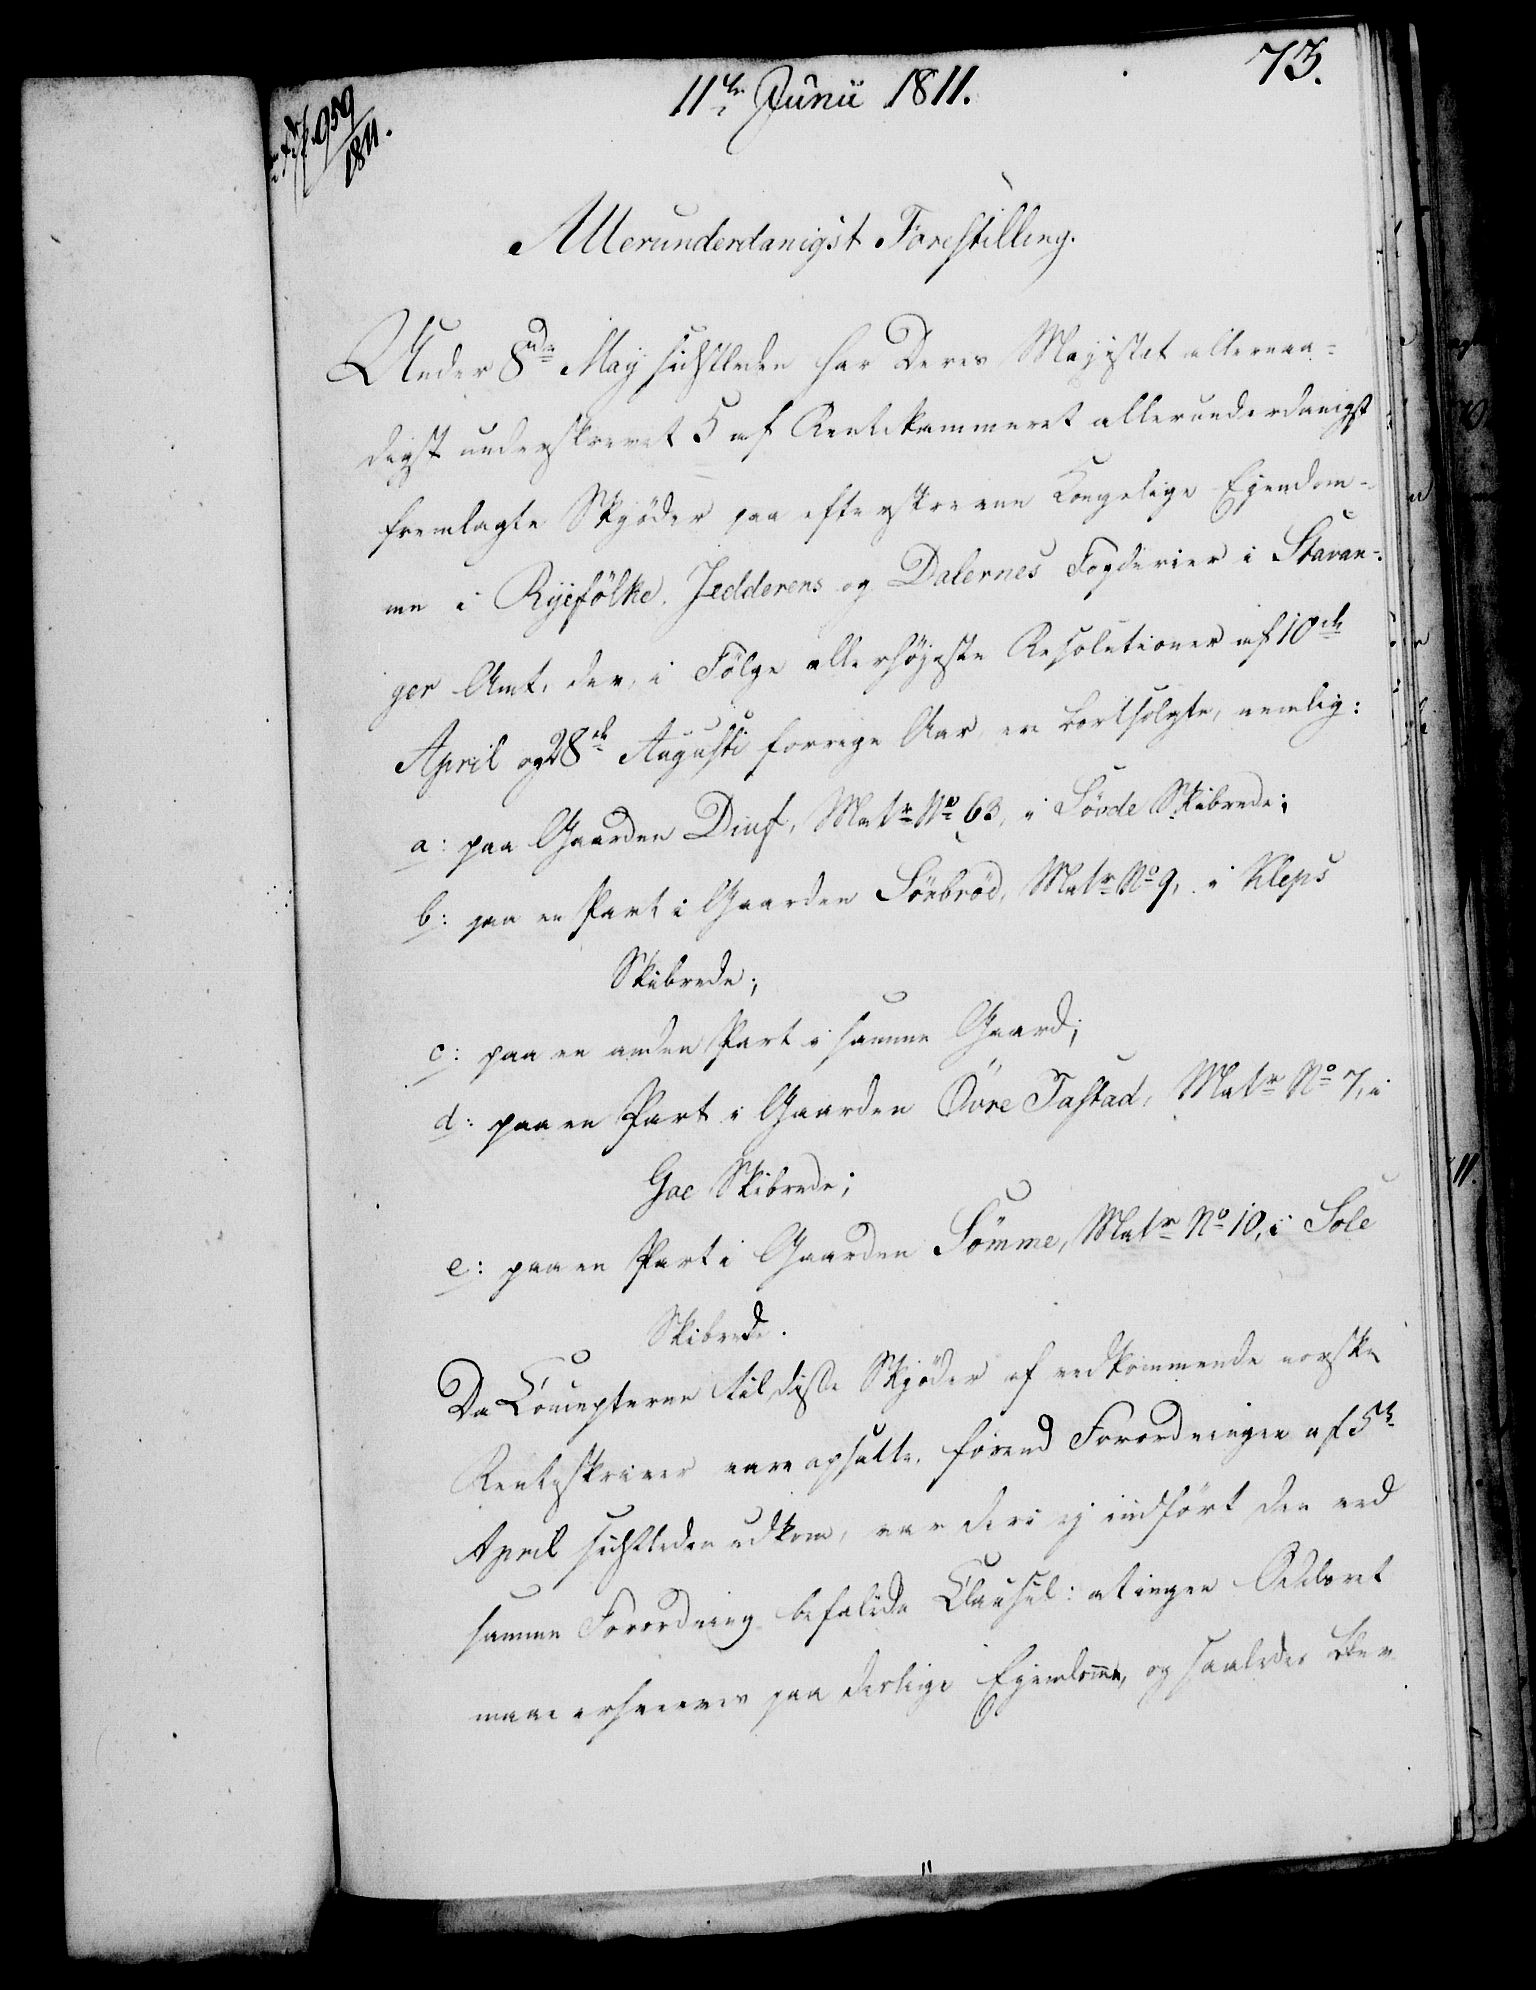 73.
11te Junii 1811.
959
1811.
Allerunderdanigst Forestilling.
Under 8de May sidstleden har Deres Majestet allernaa-
digst underskrevet 5 af Rentekammeret allerunderdanigst
fremlagte Skjöder paa efterskrevne Kongelige Ejendom-
me i Ryefölke, Jedderens og Dalernes Fogderier i Stavan-
ger Amt, der, i Fölge allerhöjeste Resolutioner af 10de
April og 28de Augusti forrige Aar, er bortsolgte, nemlig:
a: paa Gaarden Diuf, Matr No 63, i Sövde Skibrede;
b: paa en Part i Gaarden Sörbröd, Matr No 9, i Kleps
Skibrede;
c: paa en anden Part i samme Gaard;
d: paa en Part i Gaarden Övre Tastad, Matr No 7, i
Gae Skibrede;
e: paa en Part i Gaarden Sömme, Matr No 10, i Sole
Skibrede.
Da Concepterne til disse Skjöder af vedkommende norske
Renteskriver vare opsatte, förend Forordningen af 5te
April sidstleden udkom, var deri ej indfört den ved
samme Forordning befalede Clausul: at ingen Odelsret
maae erhverves paa deslige Ejendomme, og saaledes blev